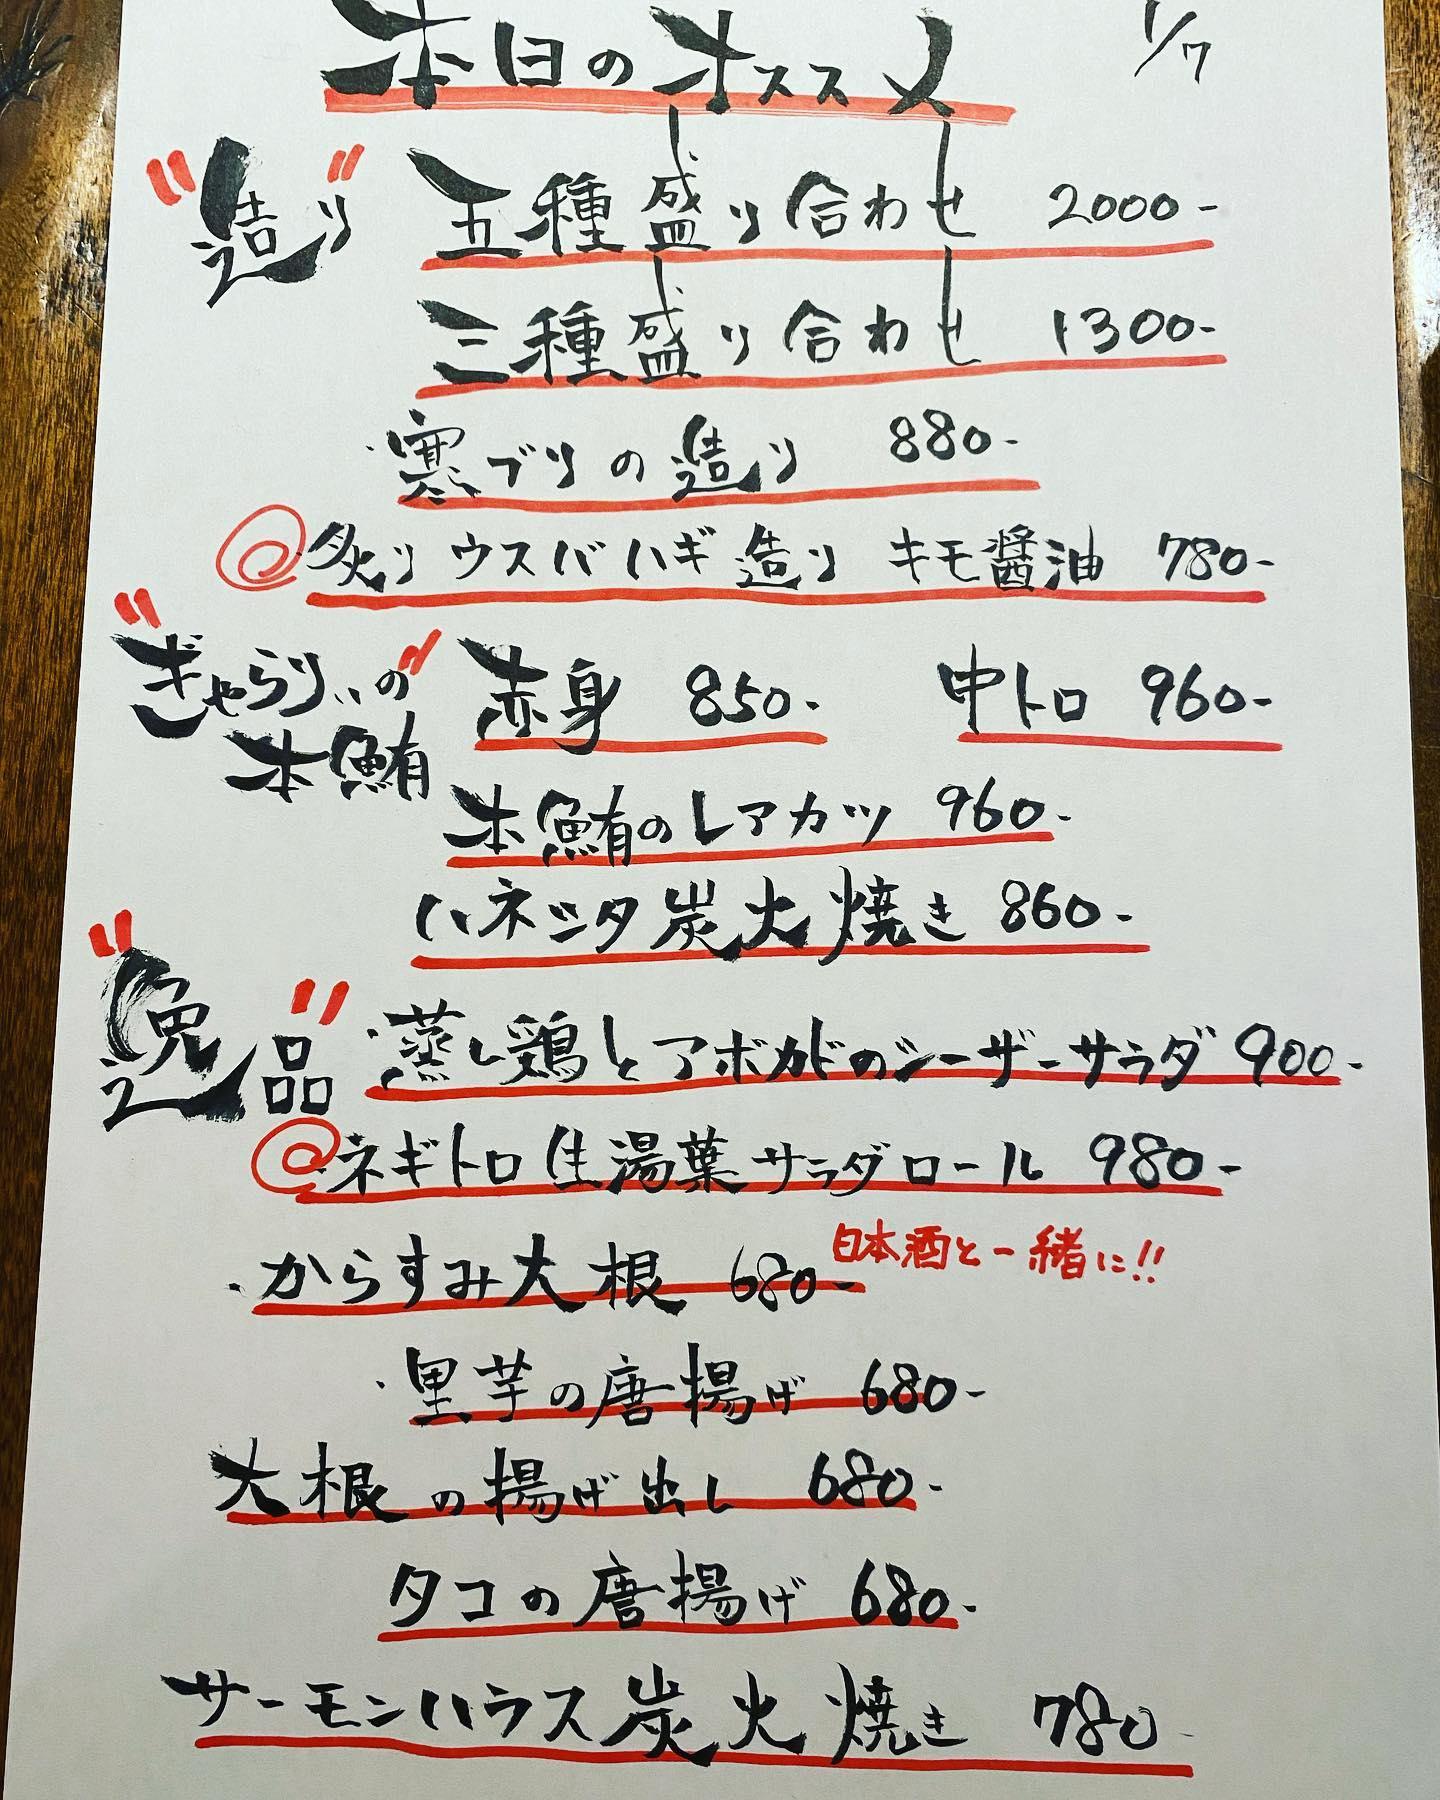 本日のオススメ 1/7
"造り" 五種盛り合わせ 2000-
三種盛り合わせ 1300-
・寒ブリの造り 880-
炙りウスバハギ造り キモ醤油 780-
"ぎゃらりぃの" 赤身 850- 中トロ 960-
本鮪
本鮪のレアカツ 960-
ハネシタ炭火焼き 860-
"逸品" ・蒸し鶏とアボカドのシーザーサラダ 900-
ネギトロ生湯葉サラダロール 980-
・からすみ大根 680- 日本酒と一緒に!!
・里芋の唐揚げ 680-
大根の揚げ出し 680-
タコの唐揚げ 680-
サーモンハラス炭火焼き 780-